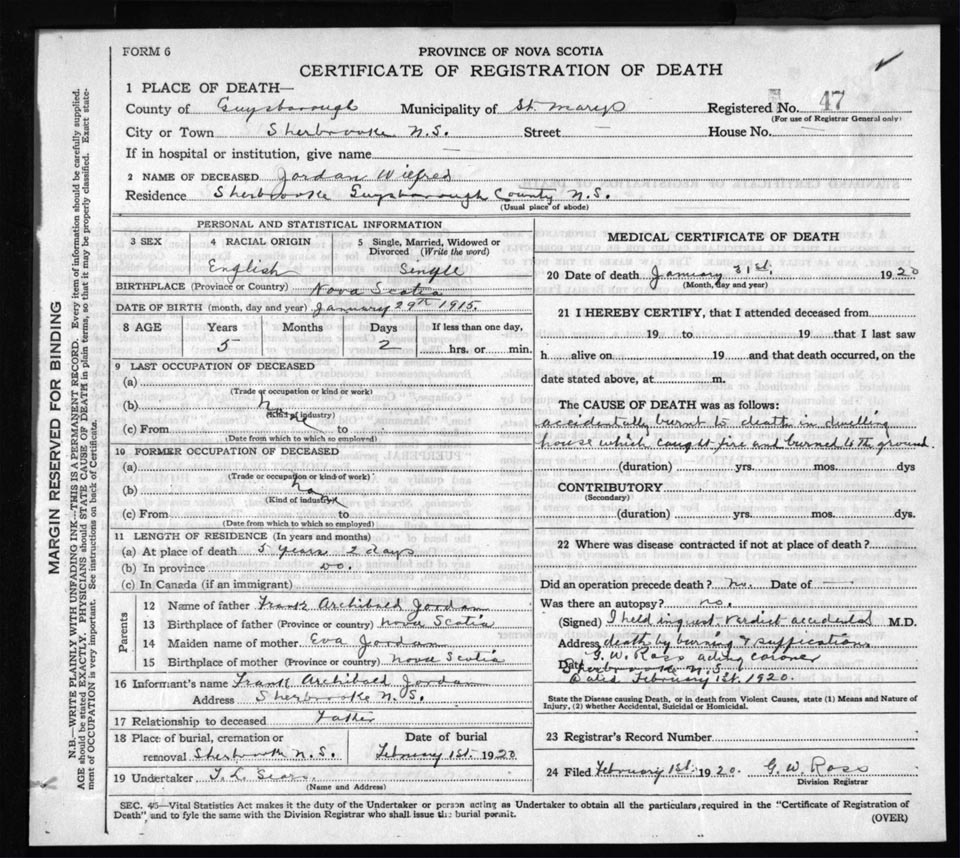 FORM 6
PROVINCE OF NOVA SCOTIA
CERTIFICATE OF REGISTRATION OF DEATH
1 PLACE OF DEATH—
County of Guysborough Municipality of St. Marys Registered No. 47
(For use of Registrar General only)
City or Town Sherbrooke N.S. Street — House No. —
If in hospital or institution, give name —
2 NAME OF DECEASED Jordan Wilfred
Residence Sherbrooke Guysborough County N.S.
(Usual place of abode)
PERSONAL AND STATISTICAL INFORMATION
3 SEX 4 RACIAL ORIGIN 5 Single, Married, Widowed or Divorced (Write the word)
English Single
BIRTHPLACE (Province or Country) Nova Scotia
DATE OF BIRTH (month, day and year) January 29th 1915.
8 AGE Years Months Days If less than one day,
5 2 hrs. or min.
9 LAST OCCUPATION OF DECEASED
(a)
(Trade or occupation or kind of work)
(b)
(Kind of industry)
(c) From to
(Date from which to which so employed)
10 FORMER OCCUPATION OF DECEASED
(a)
(Trade or occupation or kind of work)
(b)
(Kind of industry)
(c) From to
(Date from which to which so employed)
11 LENGTH OF RESIDENCE (In years and months)
(a) At place of death 5 years 2 days
(b) In province Do.
(c) In Canada (if an immigrant)
Parents
12 Name of father Frank Archibald Jordan
13 Birthplace of father (Province or country) Nova Scotia
14 Maiden name of mother Eva Jordan
15 Birthplace of mother (Province or country) Nova Scotia
16 Informant's name Frank Archibald Jordan
Address Sherbrooke N.S.
17 Relationship to deceased Father
18 Place of burial, cremation or removal Sherbrooke N.S. Date of burial February 1st. 1920
19 Undertaker J. L. Sears.
(Name and Address)
MEDICAL CERTIFICATE OF DEATH
20 Date of death January 31st. 1920
(Month, day and year)
21 I HEREBY CERTIFY, that I attended deceased from
19 to 19 that I last saw
h alive on 19 and that death occurred, on the
date stated above, at m.
The CAUSE OF DEATH was as follows:
accidentally burnt to death in dwelling
house which caught fire and burned to the ground.
(duration) yrs. mos. dys
CONTRIBUTORY
(Secondary)
(duration) yrs. mos. dys.
22 Where was disease contracted if not at place of death?
Did an operation precede death? no. Date of —
Was there an autopsy? no.
(Signed) I held inquest verdict accidental M.D.
Address death by burning & suffication
G. W. Ross acting coroner
Date Sherbrooke N.S.
Dated February 1st. 1920.
State the Disease causing Death, or in death from Violent Causes, state (1) Means and Nature of Injury, (2) whether Accidental, Suicidal or Homicidal.
23 Registrar's Record Number
24 Filed February 1st 1920. G. W. Ross
Division Registrar
SEC. 45—Vital Statistics Act makes it the duty of the Undertaker or person acting as Undertaker to obtain all the particulars, required in the "Certificate of Registration of
Death" and to fyle the same with the Division Registrar who shall issue the burial permit.
(OVER)
MARGIN RESERVED FOR BINDING
N.B.—WRITE PLAINLY WITH UNFADING INK—THIS IS A PERMANENT RECORD. Every item of information should be carefully supplied.
AGE should be stated EXACTLY. PHYSICIANS should STATE CAUSE OF DEATH in plain terms, so that it may be properly classified. Exact state-
ment of OCCUPATION is very important. See instructions on back of Certificate.